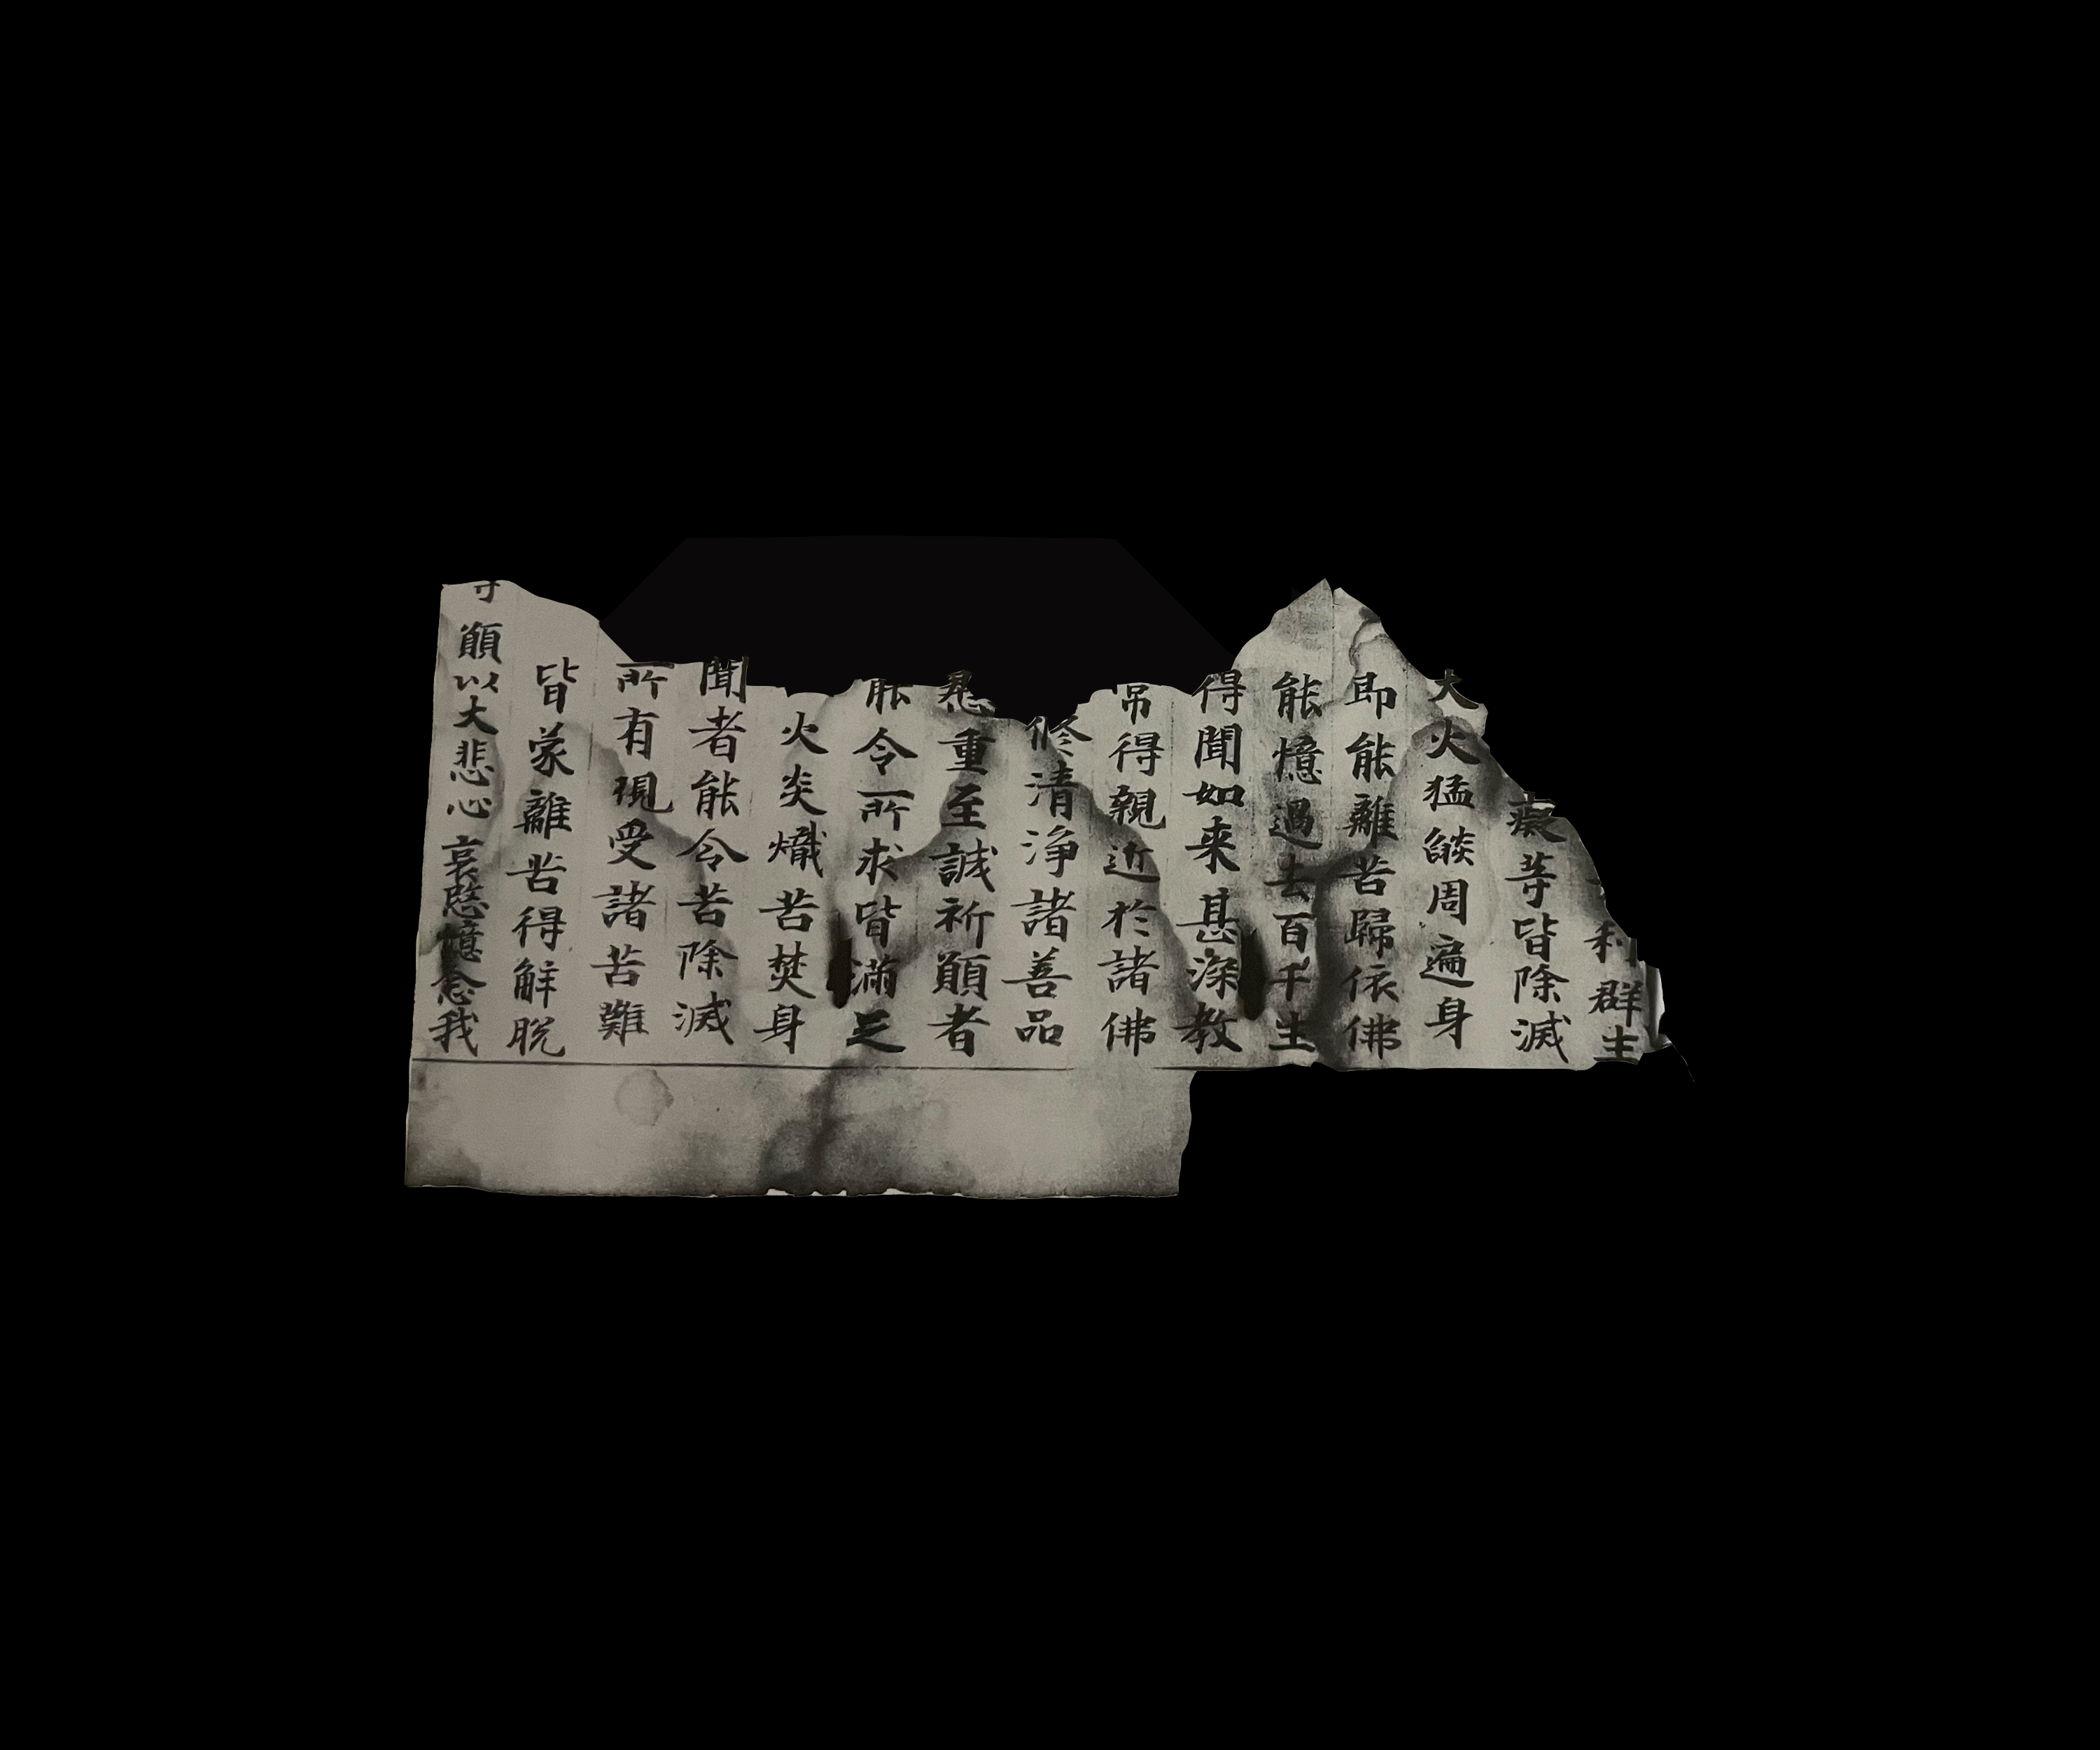 利群生
癡等皆除滅
大火猛燄周遍身
即能離苦歸依佛
能憶過去百千生
得聞如来甚深教
常得親近於諸佛
修清淨諸善品
慇重至誠祈願者
能令所求皆滿足
火炎熾苦焚身
聞者能令苦除滅
所有現受諸苦難
皆蒙離苦得解脫
願以大悲心哀愍憶念我